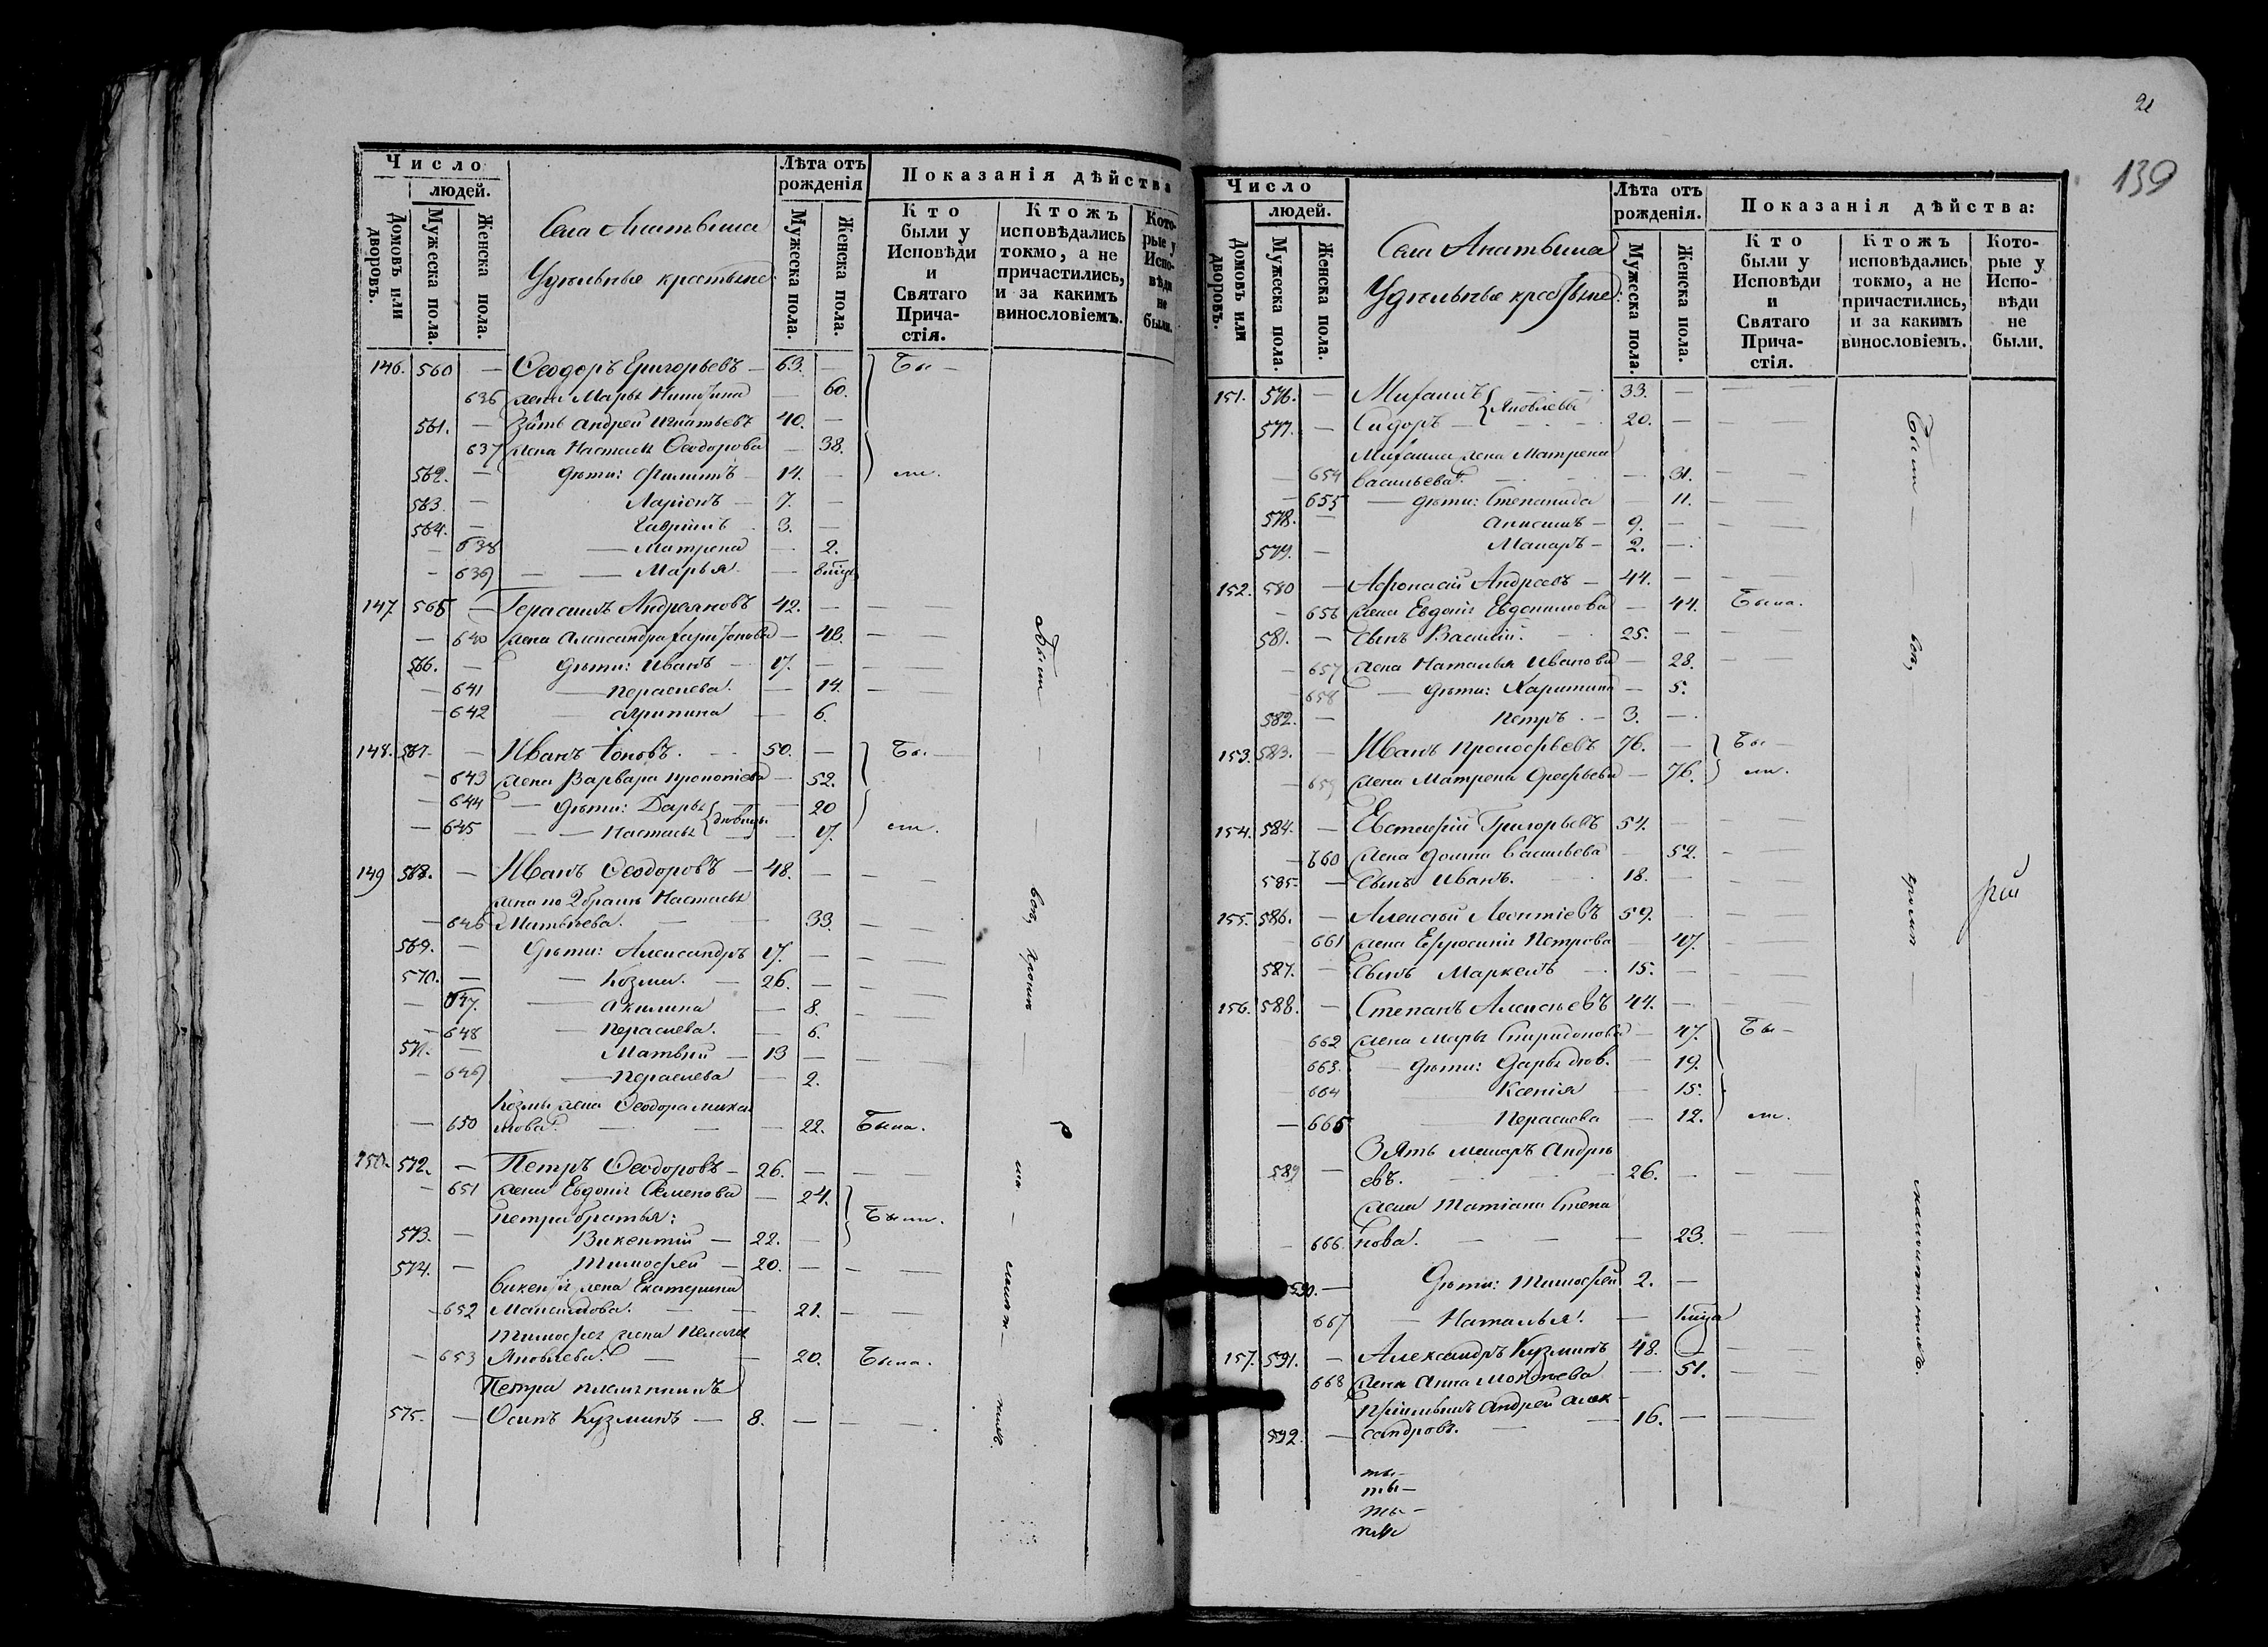 Число
людей.
Домовъ или дворовъ.
Мужеска пола.
Женска пола.
Села Анатыша
Удѣльные крестьяне
Лѣта отъ рожденія
Мужеска пола.
Женска пола.
Показанія дѣйства
Кто были у Исповѣди и Святаго Причастія.
Ктожъ исповѣдались токмо, а не причастились, и за какимъ винословіемъ.
Которые у Исповѣди не были.
146. 560 — Ѳеодоръ Григорьевъ — 63. — Бы —
636 жена Марья Никитина — 60.
561. — Зять Андрей Игнатьевъ 40. —
637 жена Настасья Ѳеодорова — 38.
562. — дѣти: Филиппъ — 14. — ли.
563. — Ларіонъ — 7. —
564. — Гаврiилъ — 3. —
— 638 — Матрена — 2.
— 639 — Марья —
147. 565 — Герасимъ Андреяновъ 42. — —
— 640 жена Александра Харитонова — 48. — —
566. — дѣти: Иванъ — 17. — — —
— 641 — Пераскева. — 14. —
— 642 — Агрипина — 6.
148. 567. — Иванъ Іоновъ. — 50. — Бы —
— 643 жена Варвара Прокопіева — 52.
— 644 — дѣти: Дарья — 20
— 645 — Настасья — 17. ли.
149 568. — Иванъ Ѳеодоровъ — 48. — — —
жена по 2 бракѣ Настасья
— 646 Матвѣева. — — 33. — —
569. — дѣти: Александръ 17. — — —
570. — Козма. — 26. — — —
— 647. — Акилина — 8. — —
— 648 — Пераскева. — 6.
571. — Матвѣй — 13 — — —
— 649 — Пераскева — 2.
Козмы жена Ѳеодора Михаи
— 650 лова. — — 22. Была.
150. 572. — Петръ Ѳеодоровъ — 26. — — —
— 651 жена Евдокія Семенова — 24.
Петра братья: Были.
573. — Викентій — 22. —
574. — Тимоѳей — 20. — — —
Викентія жена Екатерина
— 652 Максимова. — — 21. — —
Тимоѳея жена Пелагея
— 653 Яковлева. — — 20. Была.
Петра племянникъ
575. — Осипъ Кузминъ — 8. — — —
Были
21
139
Число
людей.
Домовъ или дворовъ.
Мужеска пола.
Женска пола.
Села Анатыша
Удѣльные крестьяне:
Лѣта отъ рожденія.
Мужеска пола.
Женска пола.
Показанія дѣйства:
Кто были у Исповѣди и Святаго Причастія.
Ктожъ исповѣдались токмо, а не причастились, и за какимъ винословіемъ.
Которые у Исповѣди не были.
151. 576. — Михаилъ } Яковлевы 33. — —
577. — Сидоръ — 20. — — —
Михаила жена Матрена
— 654 Васильева. — — 31. — —
— 655 — дѣти: Степанида — 11. —
578. — Анисимъ — 9. — — —
579. — Макаръ — 2. —
152. 580 — Афонасій Андреевъ — 44. — — —
— 656 жена Евдокія Евдокимова — 44. Была.
581. — сынъ Василій. — 25. — —
— 657 жена Наталья Иванова — 28. — —
— 658 — дѣти: Харитина — 5.
582. — Петръ. — 3. —
153. 583. — Иванъ Прокофьевъ 76. — Бы —
— 659 жена Матрена Ерефьева — 76. ли.
154. 584. — Евстафій Григорьевъ 54. — — —
— 660 жена Васильева — 52. — —
585. — Сынъ Иванъ. — 18. — —
155. 586. — Алексѣй Леонтіевъ 59. — —
661 жена Ефросинія Петрова — 47. —
587. — Сынъ Маркелъ — 15. — —
156. 588. — Степанъ Алексѣевъ 44. — —
662 жена Марья Спиридонова — 47. Бы —
663. — дѣти: Дарья — 19.
664 Ксенія — 15.
— 665 — Пераскева — 12. ли.
Зять Макаръ Андрѣ
589 — евъ. — 26. — — —
жена Татіана Степа
— 666. нова. — — — 23. — —
590. — дѣти: Тимоѳей 2. —
667 — Наталья. —
157. 591. — Александръ Кузминъ 48. — —
668 жена Анна — 51. —
Пріимышъ Андрей Алек
592. — сандровъ. — — 16. — —
Были
рей